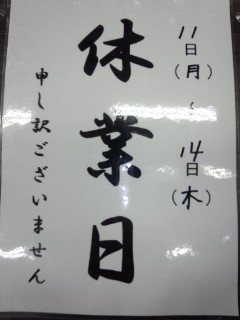 11日(月)～14日(木)
休業日
申し訳ございません